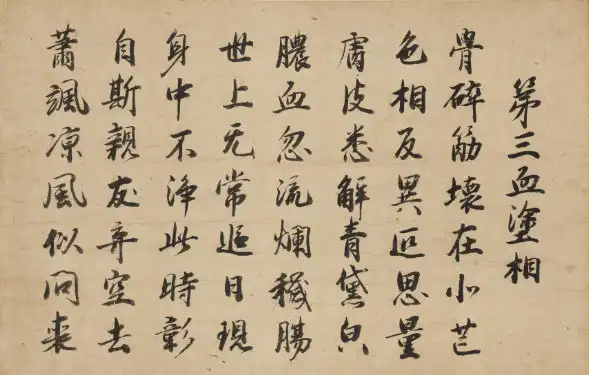 第三血塗相
骨碎筋壞在北芒
色相反異叵思量
膚皮悉解青黛皃
膿血忽流爛穢腸
世上无常日現
身中不淨此時彰
自斯親友弃空去
蕭颯凉風似問喪